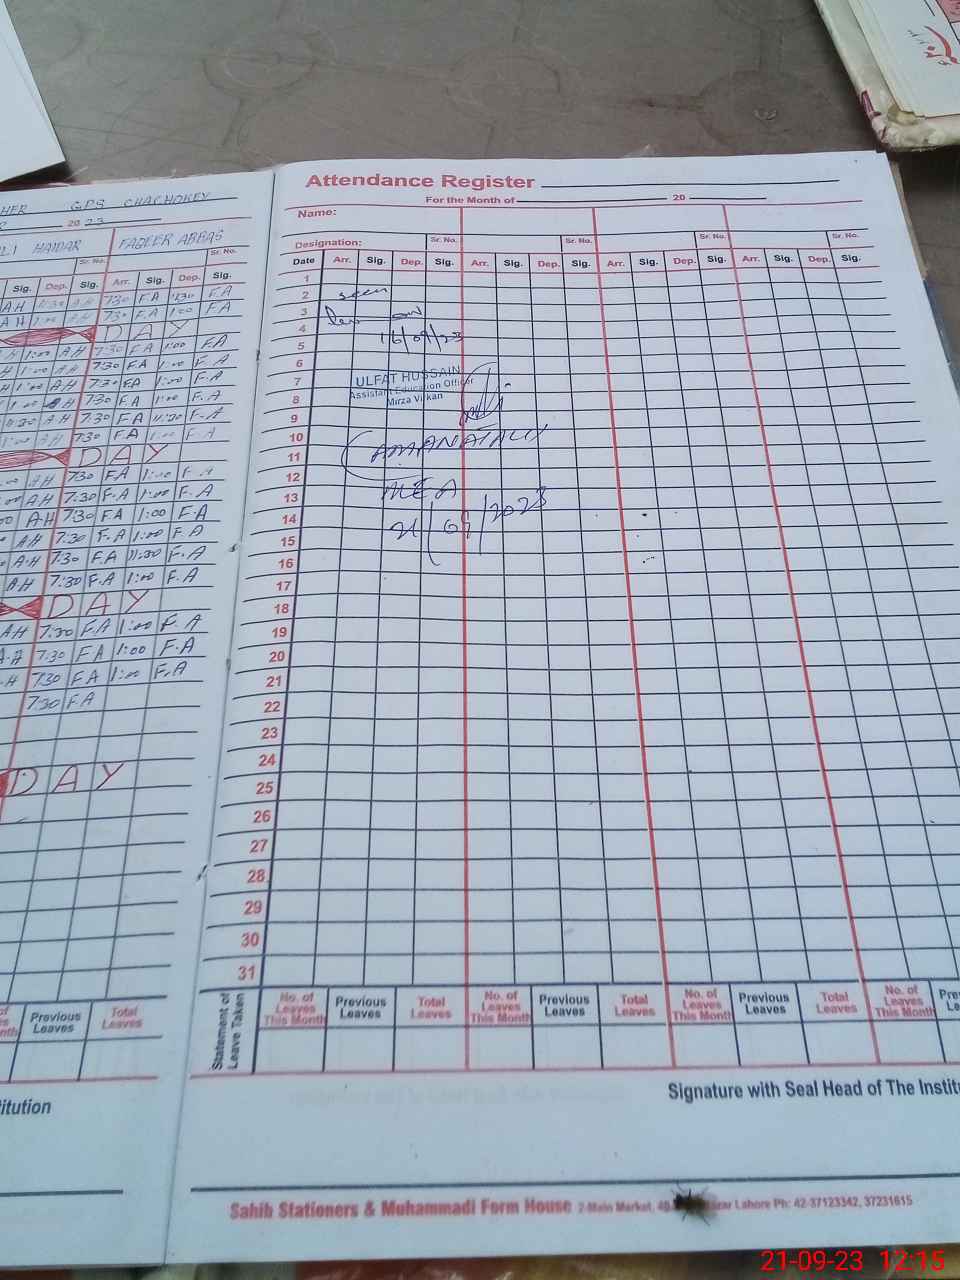 HER GPS CHACHOKEY
2023
LI HAIDAR FAQEER ABBAS
Sr. No. Sr. No.
Sig. Dep. Sig. Arr. Sig. Dep. Sig.
AH A H 730 F.A 1:30 F.A
A H 1:00 A H 730 F.A 1:00 F A
DAY
H 1:00 A H 7:30 F.A 1:00 F.A
H 1:00 A H 7:30 F.A 1:00 F.A
H 1:00 A H 7:30 F.A 1:00 F.A
H 1:00 H 7:30 F.A 1:00 F.A
A H 7.30 F.A 11:30 F.A
1:00 A H 730 F.A 1:00 F.A
DAY
A H 730 F.A 1:00 F.A
A.H 7:30 F.A 1:00 F.A
A.H 7:30 F.A 1:00 F.A
A.H 7:30 F.A 1:00 F.A
A.H 7:30 F.A 11:30 F.A
A.H 7:30 F.A 1:00 F.A
DAY
A.H 7:30 F.A 1:00 F.A
A.A 7:30 F.A 1:00 F.A
H 7:30 F.A 1:00 F.A
7:30 F.A
DAY
Previous Leaves Total Leaves
titution
Attendance Register
For the Month of 20
Name:
Designation: Sr. No. Sr. No. Sr. No. Sr. No.
Date Arr. Sig. Dep. Sig. Arr. Sig. Dep. Sig. Arr. Sig. Dep. Sig. Arr. Sig. Dep. Sig.
1
2 seen
3
4
5 16/09/23
6
7 ULFAT HUSSAIN
8 Assistant Education Officer
Mirza Virkan
9
10
11 AMANAT ALI
12
13 MEA
14 21/09/2023
15
16
17
18
19
20
21
22
23
24
25
26
27
28
29
30
31
Statement of Leave Taken
No. of Leaves This Month Previous Leaves Total Leaves No. of Leaves This Month Previous Leaves Total Leaves No. of Leaves This Month Previous Leaves Total Leaves No. of Leaves This Month
Signature with Seal Head of The Institu
Sahib Stationers & Muhammadi Form House 2-Main Market, Lahore Ph: 42-37123342, 37231615
21-09-23 12:15